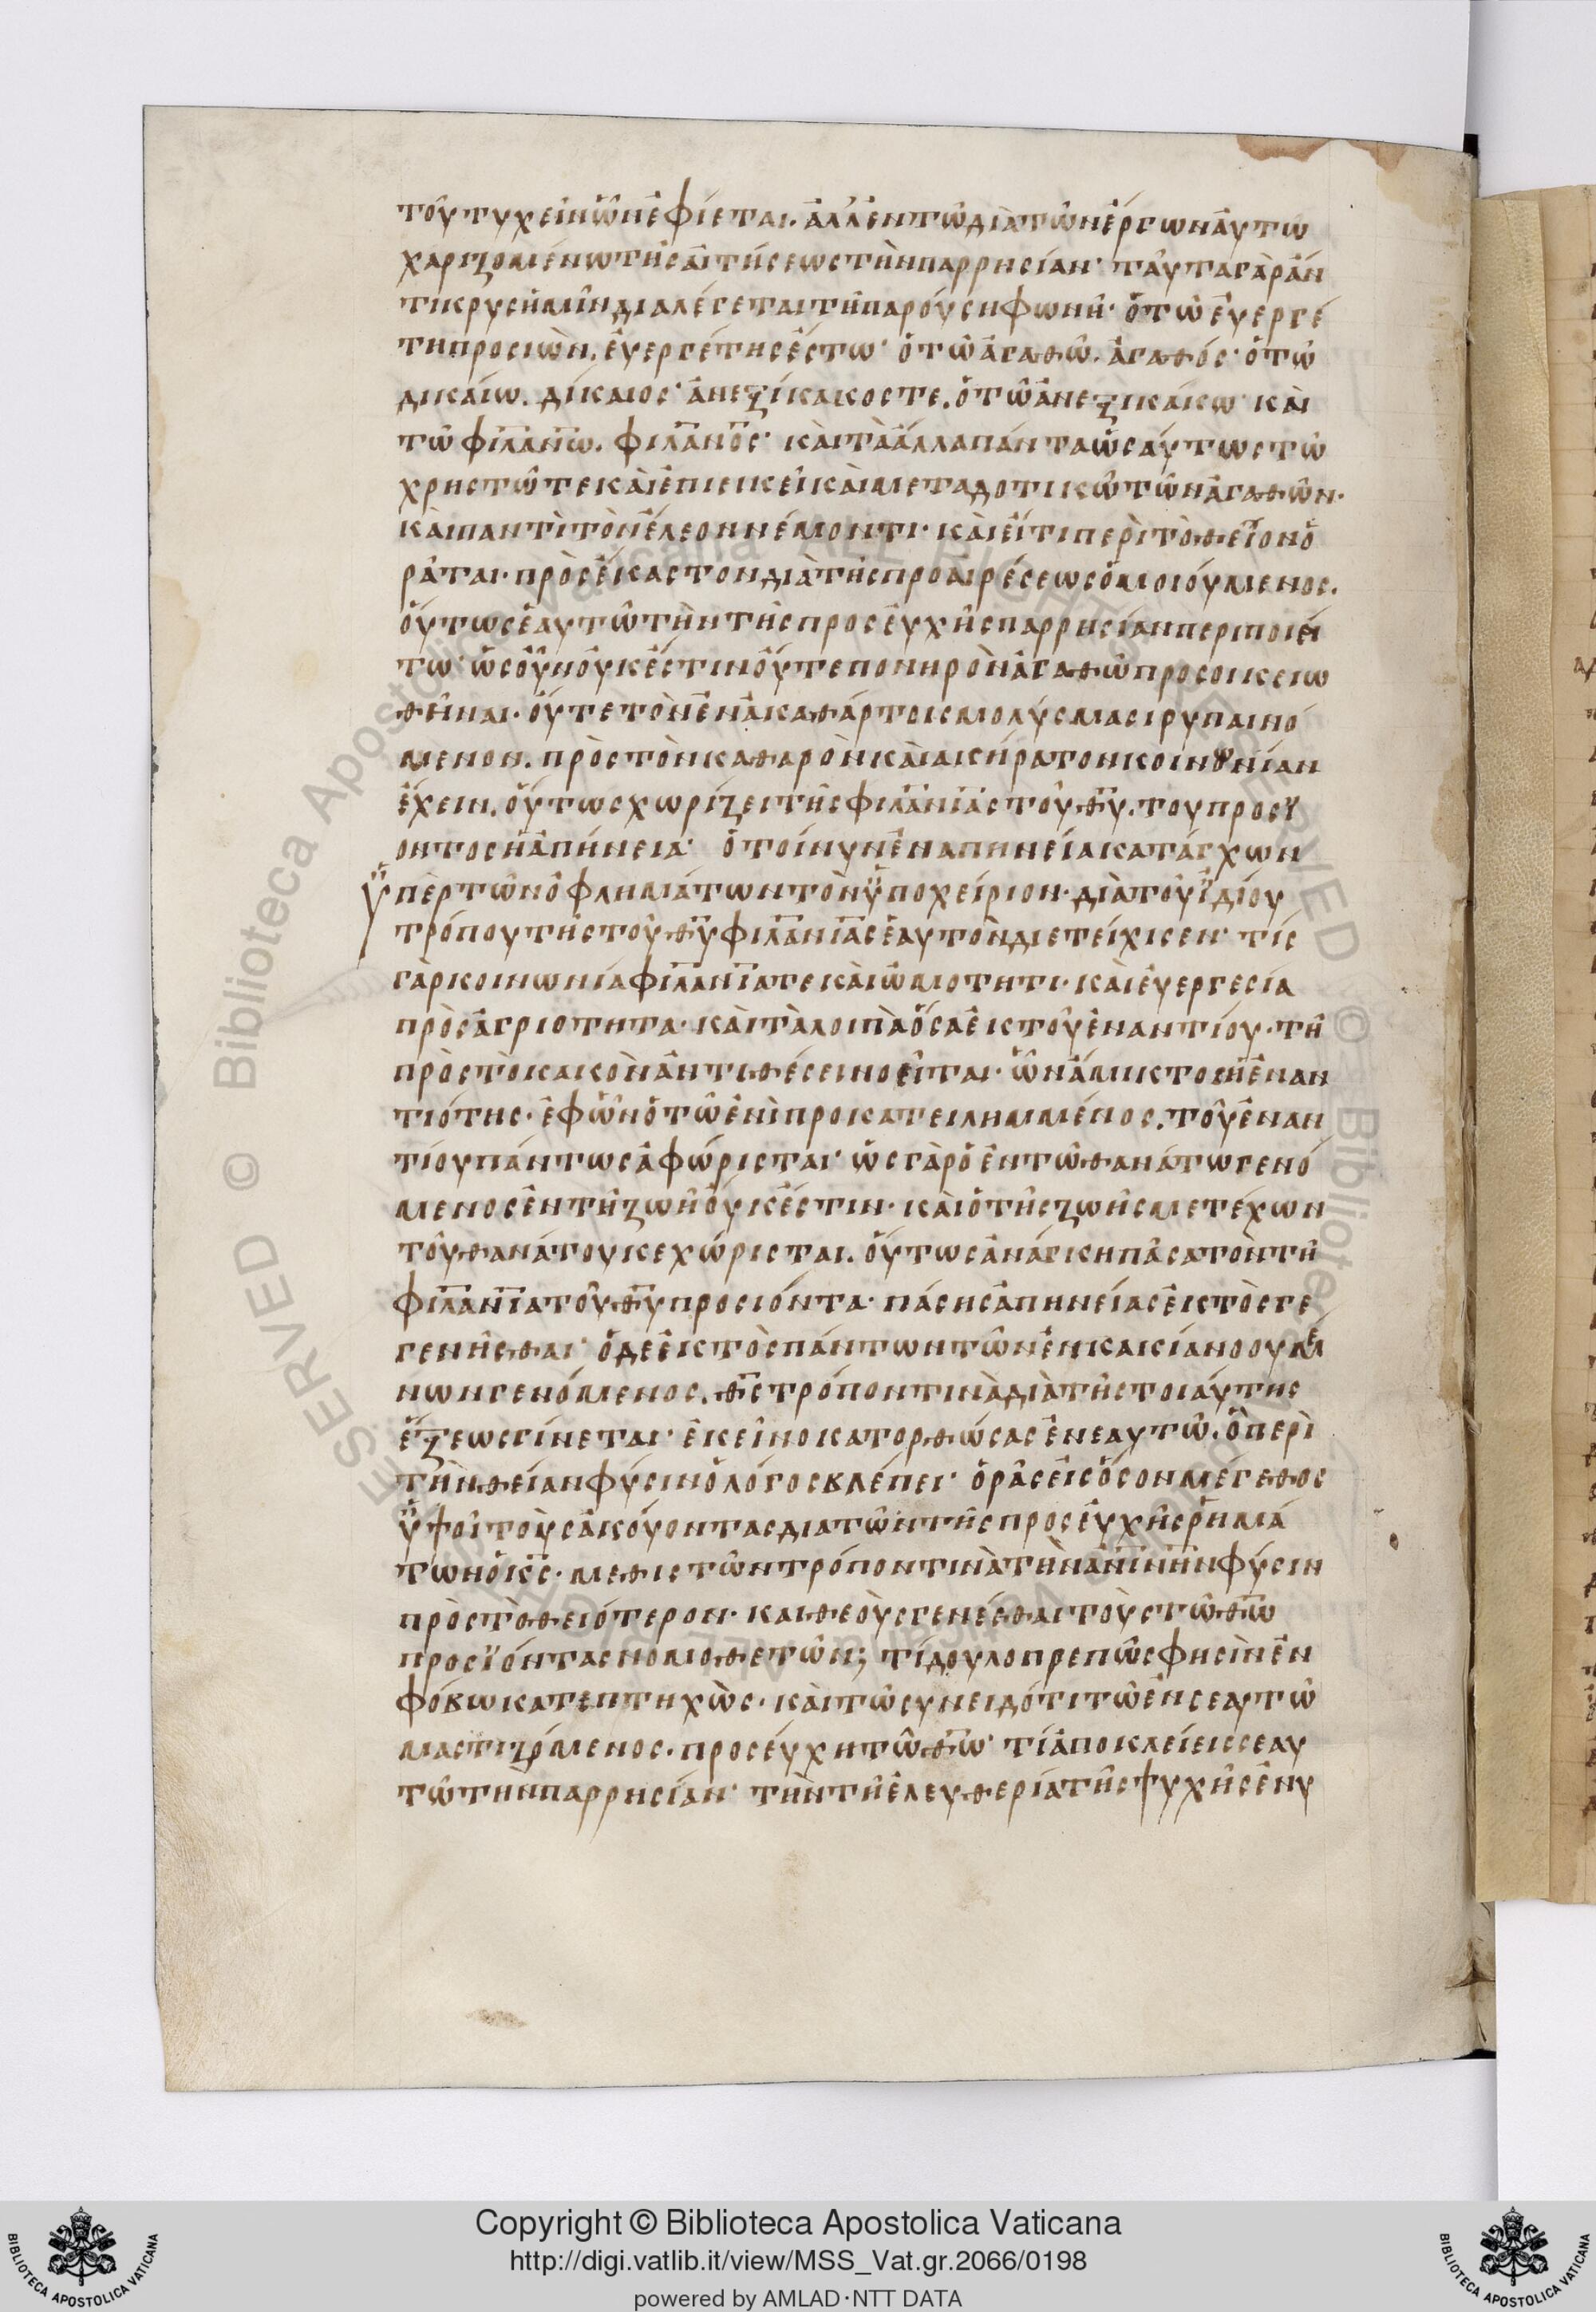 τοῦ τυχεῖν ὧν ἐφίεται. ἀλλ' ἐν τῶ διὰ τῶν ἔργων αὐτῶ
χαριζομένω τῆς αἰτήσεως τὴν παρρησίαν· ταῦτα γὰρ ἄν
τικρυς ἡμῖν διαλέγεται τῆ παρούση φωνῆ· ὁ τῶ εὐεργέ
τη προσιὼν, εὐεργέτης ἔστω· ὁ τῶ ἀγαθῶ. ἀγαθός· ὁ τῶ
δικαίω. δίκαιος· ἀνεξίκακός τε. ὁ τῶ ἀνεξικάκω· καὶ
τῶ φιλανω. φιλανος· καὶ τὰ ἄλλα πάντα ὡσαύτως τῶ
χρηστῶ τε καὶ ἐπιεικεῖ καὶ μεταδοτικῶ τῶν ἀγαθῶν·
καὶ παντὶ τὸν ἔλεον νέμοντι· καὶ εἴ τι περὶ τὸ θεῖον ὁ
ρᾶται· πρὸς ἕκαστον διὰ τῆς προαιρέσεως ὁμοιούμενος.
οὕτως ἑαυτῶ τὴν τῆς προσευχῆς παρρησίαν περιποιεί
τω· ὡς οὖν οὐκ ἔστιν οὔτε πονηρὸν ἀγαθῶ προσοικειω
θῆναι· οὔτε τὸν ἐν ἀκαθάρτοις μολύσμασι ρυπαινό
μενον. πρὸς τὸν καθαρὸν καὶ ακήρατον κοινωνίαν
ἔχειν. οὕτως χωρίζει τῆς φιλανιας τοῦ θυ. του προσϊ
οντος ἡ ἀπήνεια· ὁ τοίνυν ἐν απηνεία κατάγχων
ὑπὲρ τῶν ὀφλημάτων τὸν ὑποχείριον· διὰ τοῦ ἰδίου
τρόπου τῆς τοῦ θυ φιλανιας ἑαυτὸν διετείχισεν· τίς
γὰρ κοινωνία φιλανια τε καὶ ὠμοτητι· καὶ εὐεργεσία
πρὸς ἀγριοτητα· καὶ τὰ λοιπὰ ὅσα ἐκ τοῦ ἐναντίου· τῆ
πρὸς τὸ κακὸν ἀντιθέσει νοεῖται· ὧν ἄμικτος ἡ ἐναν
τιότης· ἐφ ὧν ὁ τῶ ἑνὶ προκατειλημμένος. τοῦ ἐναν
τίου πάντως ἀφώρισται· ὡς γὰρ ὁ ἐν τῶ θανάτω γενό
μενος ἐν τῆ ζωῆ οὐκ ἔστιν· καὶ ὁ τῆς ζωῆς μετέχων
τοῦ θανάτου κεχώρισται. οὕτως ἀνάγκη πᾶσα τὸν τῆ
φιλανια τοῦ θυ προσιόντα· πάσης ἀπηνείας ἐκτὸς γε
γενῆσθαι· ὁ δε ἐκτὸς πάντων τῶν ἐν κακία νοουμέ
νων γενόμενος. θς τρόπον τινὰ διὰ τῆς τοιαύτης
ἕξεως γίνεται· ἐκεῖνο κατορθώσας ἐν εαυτῶ. ὃ περὶ
τὴν θείαν φύσιν ὁ λόγος βλέπει· ὁρᾶς εἰς ὅσον μέγεθος
ὑψοῖ τοὺς ἀκούοντας δια τῶν τῆς προσευχῆς ρημά
των ὁ κς· μεθιστῶν τρόπον τινὰ τὴν ανινην φύσιν
πρὸς τὸ θειότερον· και θεοὺς γενέσθαι τοὺς τῶ θω
προσϊόντας νομοθετῶν; τί δουλοπρεπῶς φησὶν ἐν
φόβω κατεπτηχὼς· καὶ τῶ συνειδότι τῶ ἐν σεαυτῶ
μαστιζόμενος· προσέυχη τῶ θω· τί ἀποκλείεις σεαυ
τῶ την παρρησίαν· τὴν τῆ ἐλευθερία τῆς ψυχῆς ἐνυ
Copyright © Biblioteca Apostolica Vaticana
http://digi.vatlib.it/view/MSS_Vat.gr.2066/0198
powered by AMLAD·NTT DATA